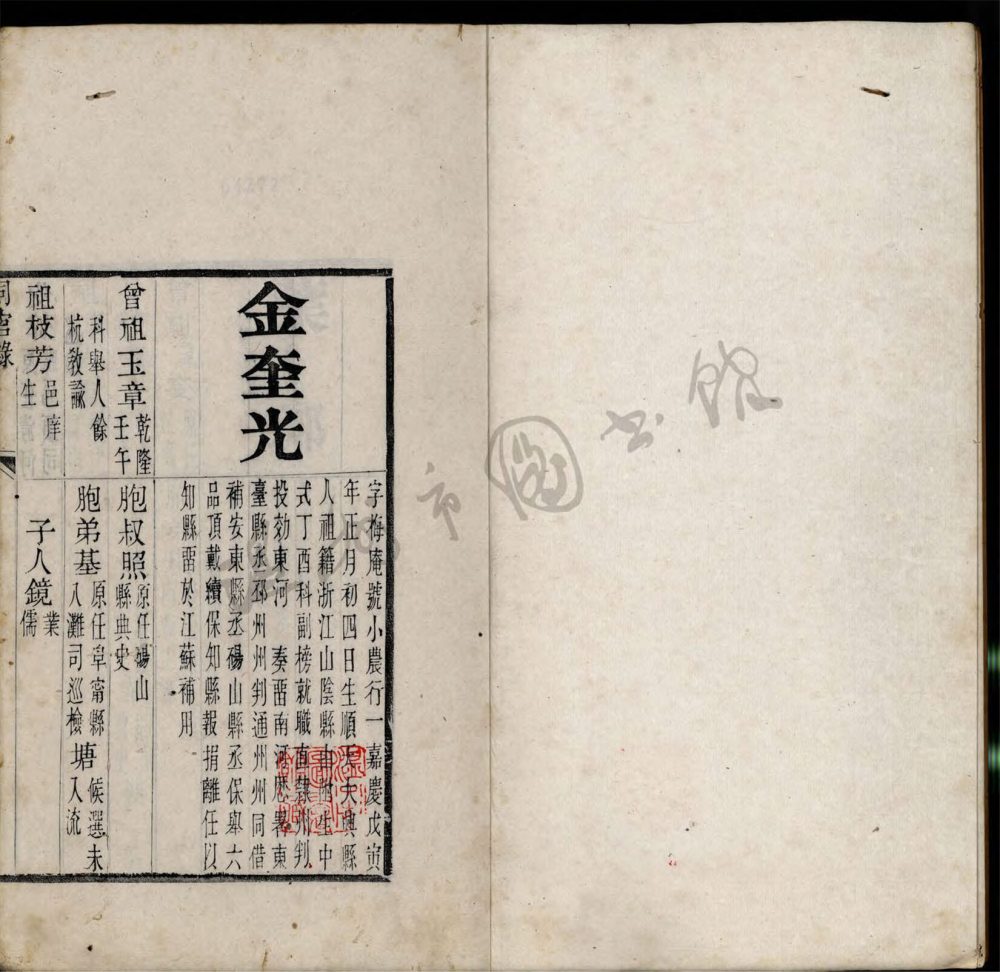 金奎光
字梅庵號小農行一嘉慶戊寅
年正月初四日生順天大興縣
人祖籍浙江山陰縣由附生中
式丁酉科副榜就職直隸州判
投効東河　奏畱南河歷署東
臺縣丞邳州州判通州州同借
補安東縣丞碭山縣丞保舉六
品頂戴續保知縣報捐離任以
知縣畱於江蘇補用
曾祖玉章乾隆
壬午
科舉人餘
杭教諭
胞叔照原任碭山
縣典史
祖枝芳邑庠
生
胞弟基原任阜甯縣
八灘司巡檢
塘候選未
入流
子人鏡業
儒
同官錄
市圖書館